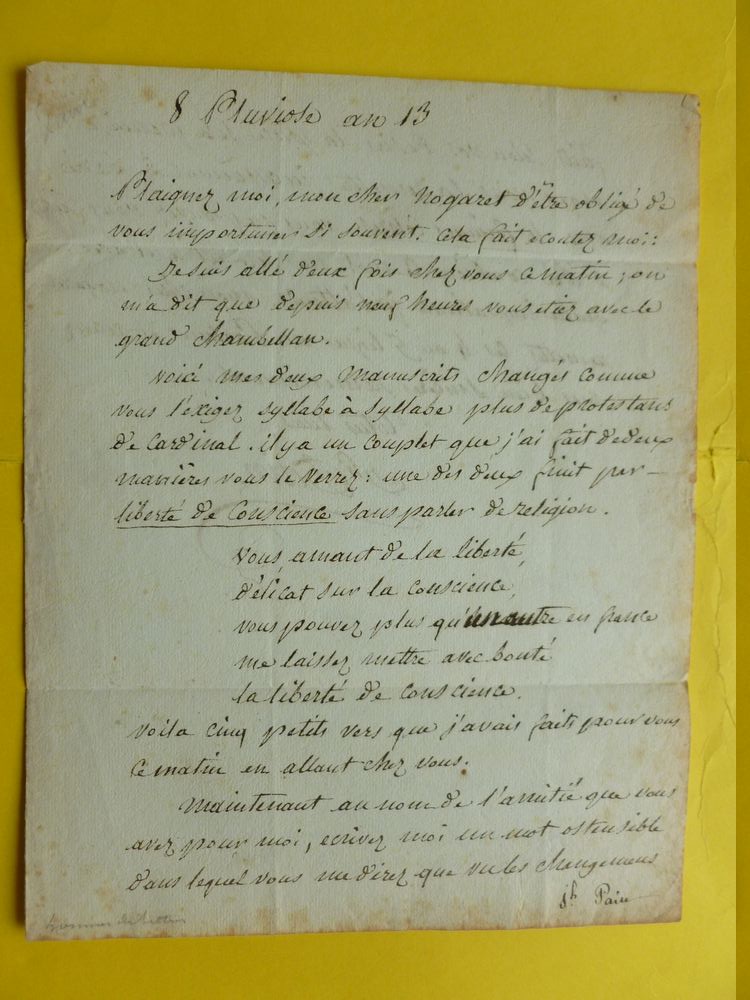 8 Pluviose an 13
Plaignez moi, mon cher Nogaret d'être obligé de
vous importuner si souvent. Cela fait ecoutez moi:
Je suis allé deux fois chez vous ce matin; on
m'a dit que depuis neuf heures vous etiez avec le
grand Chambellan.
Voici mes deux Manuscrits changés comme
vous l'exigez syllabe à syllabe plus de protestans
de Cardinal. il y a un Couplet que j'ai fait de deux
manières vous le verrez: une des deux finit par
liberté de Conscience sans parler de religion.
Vous amant de la liberté,
délicat sur la Conscience,
vous pouvez plus qu'un autre en france
me laissez mettre avec bonté
la liberté de Conscience.
Voila Cinq petits vers que j'avais faits pour vous
Ce matin en allant chez vous.
Maintenant au nom de l'amitié que vous
avez pour moi, ecrivez moi un mot ostensible
dans lequel vous me direz que vu les changemens
Jh Pain